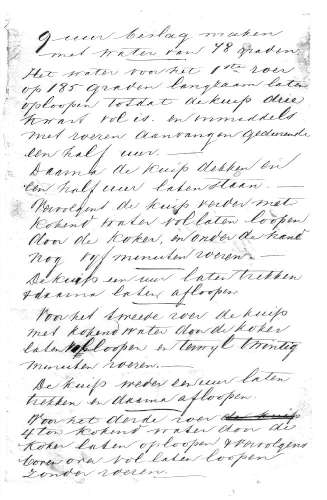 9 uur beslag maken
met water van 78 graden.
Het water voor het 1ste roer
op 185 graden langzaam laten
oploopen totdat de kuip drie
kwart vol is. en inmiddels
met roeren aanvangen gedurende
een half uur. —
Daarna de kuip dekken en
een half uur laten staan. —
Vervolgens de kuip verder met
kokend water vol laten loopen
door de koker, en onder de hand
nog vijf minuten roeren. —
De kuip een uur laten trekken
& daarna laten afloopen
Voor het tweede roer de kuip
met kokend water door de koker
laten oploopen en terwyl twintig
minuten roeren. —
De kuip weder een uur laten
trekken en daarna afloopen.
Voor het derde roer de kuip
4 ton kokend water door de
koker laten oploopen & vervolgens
boven over vol laten loopen
zonder roeren. —